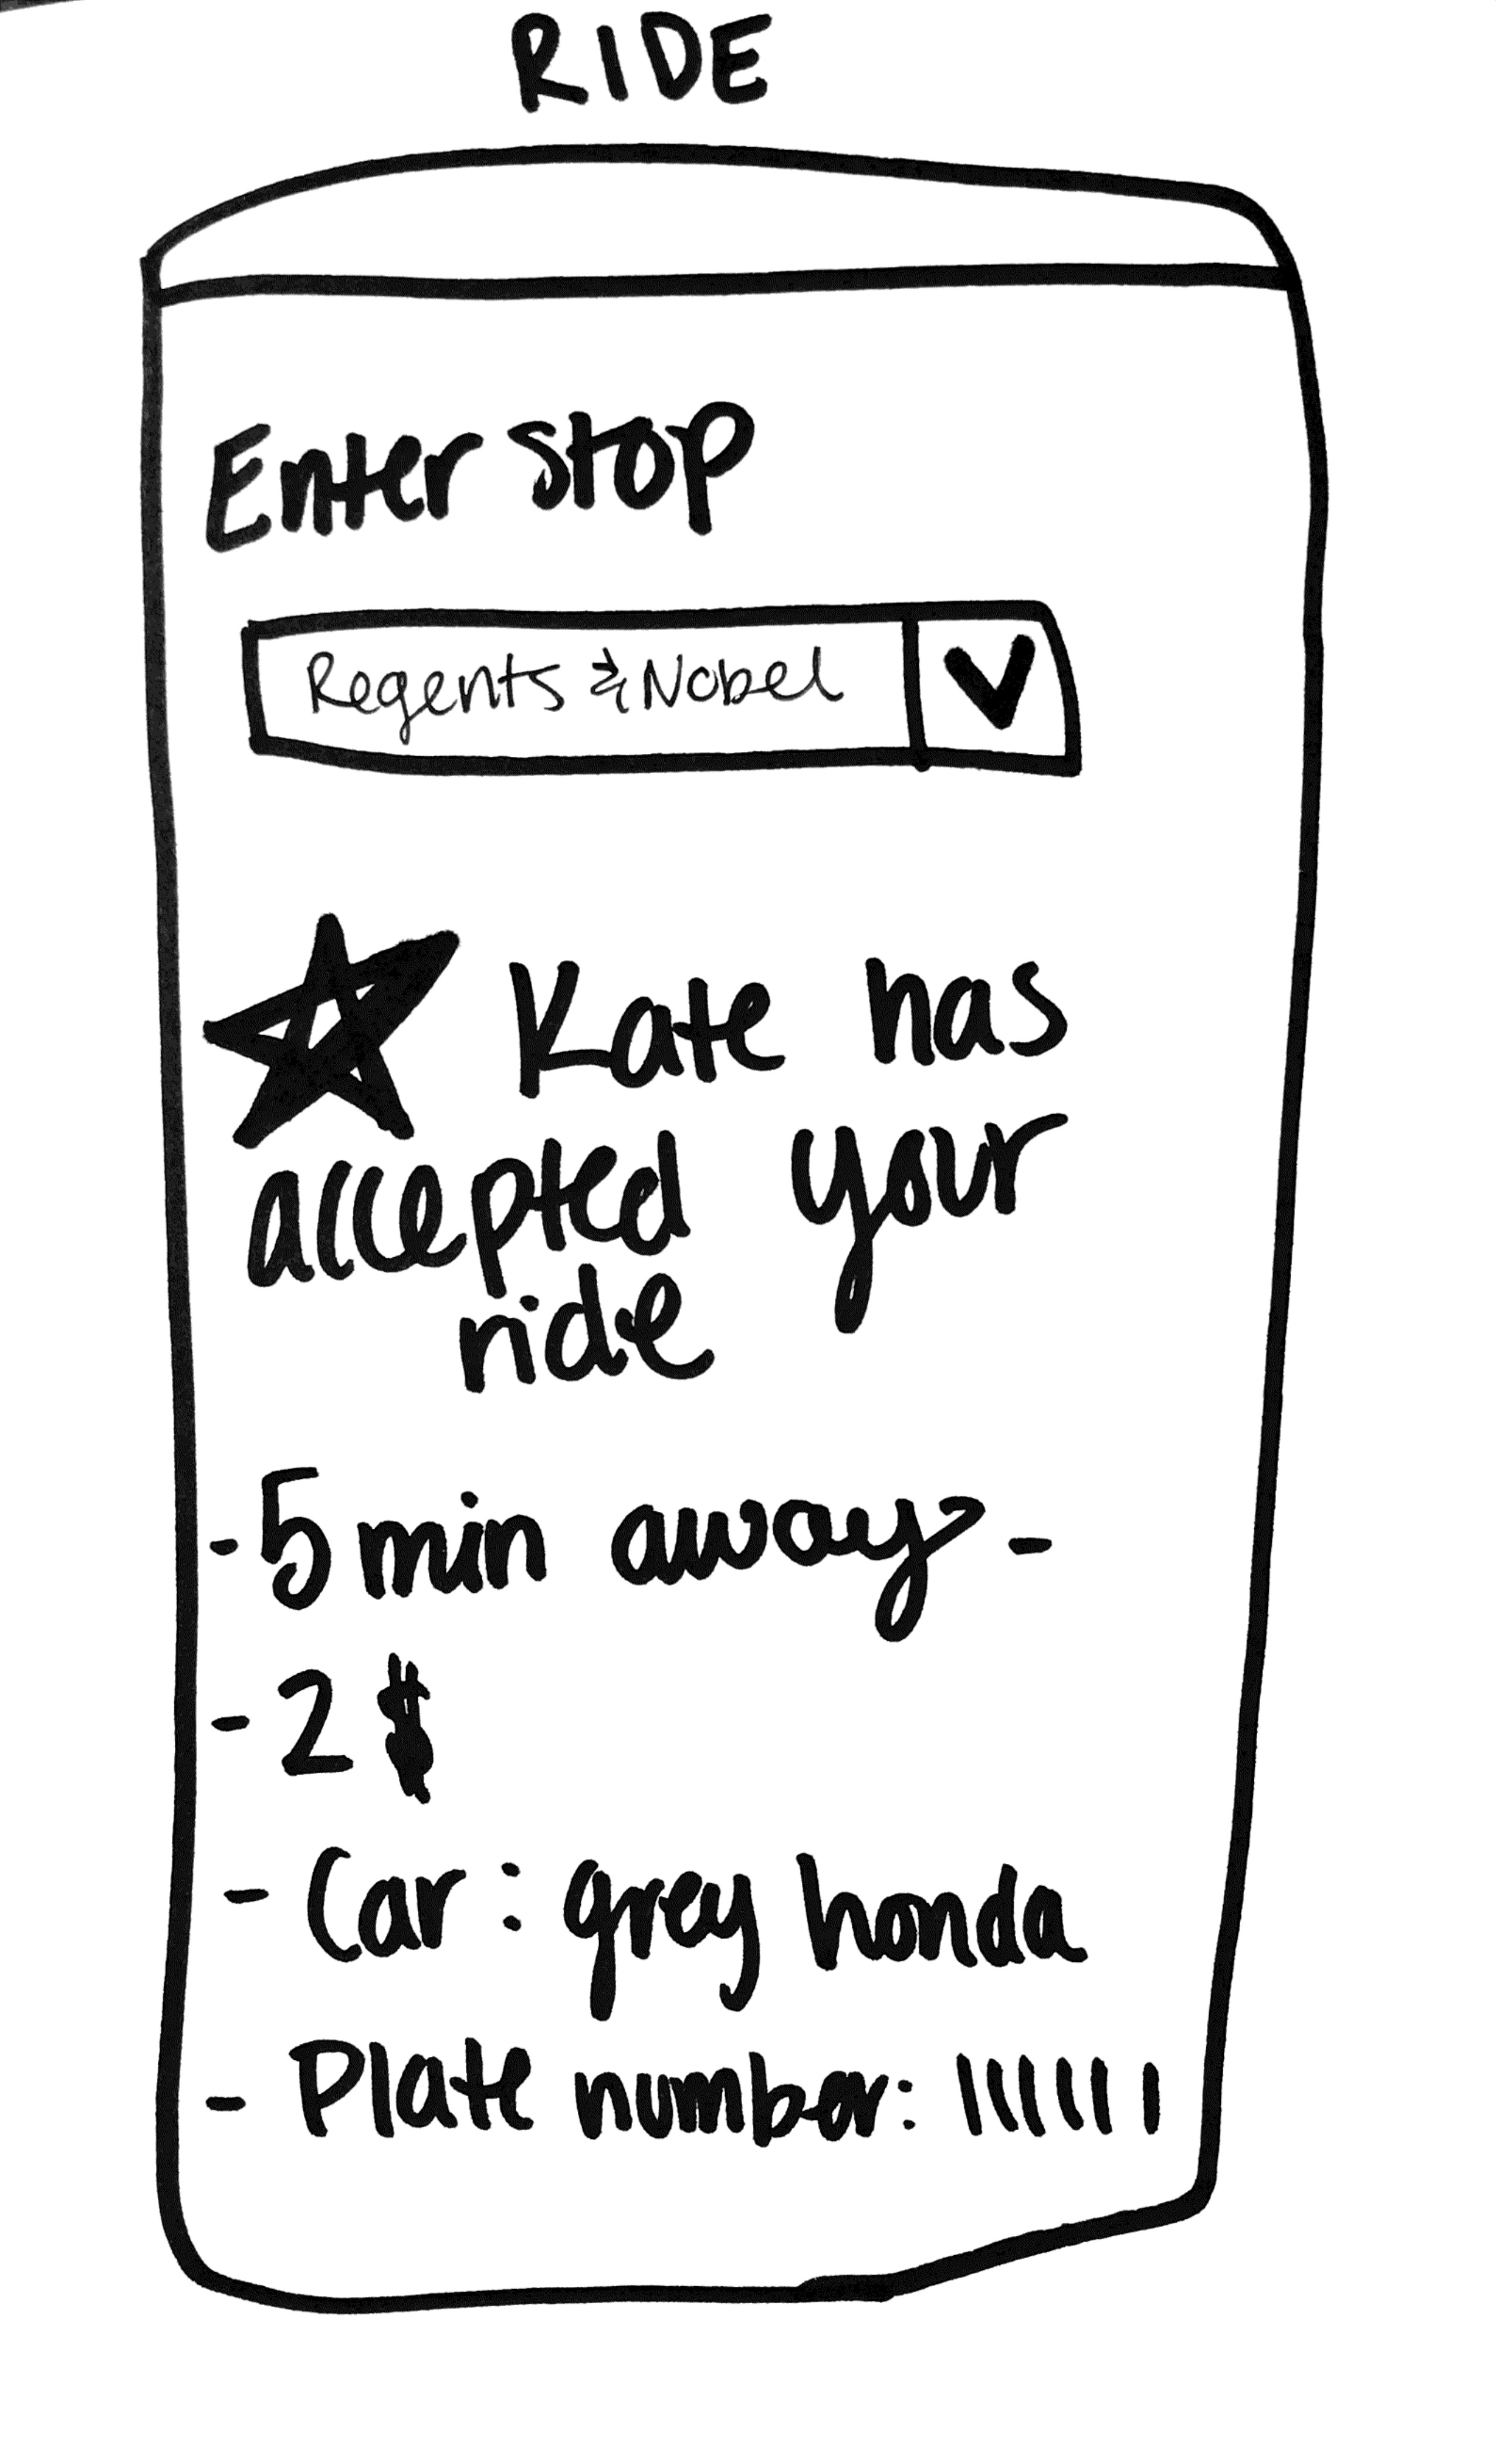 RIDE
Enter stop
Regents & Nobel
Kate has
accepted your
ride
- 5 min away -
- 2 $
- Car: grey honda
- Plate number: 111111